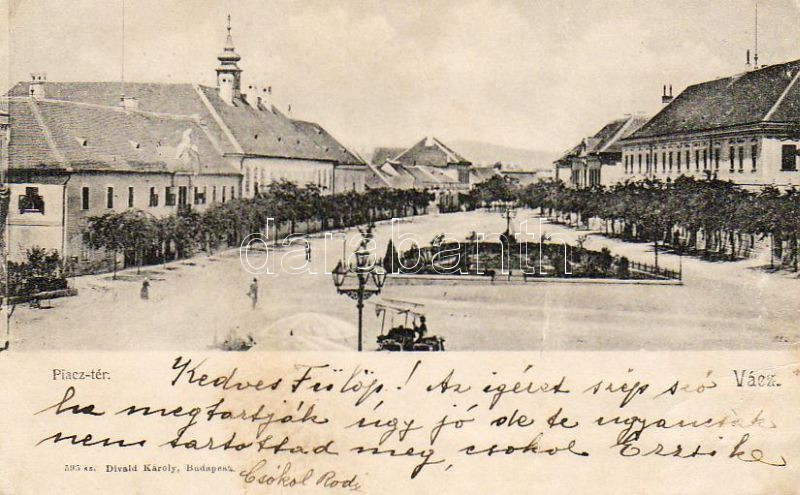 darabanth
Piacz-tér.
Vácz.
Kedves Fülöp! Az igéret szép szó
ha megtartják úgy jó de te ugyancsak
nem tartottad meg, csokol Erzsike
595 sz. Divald Károly, Budapest.
Csókol Rodi